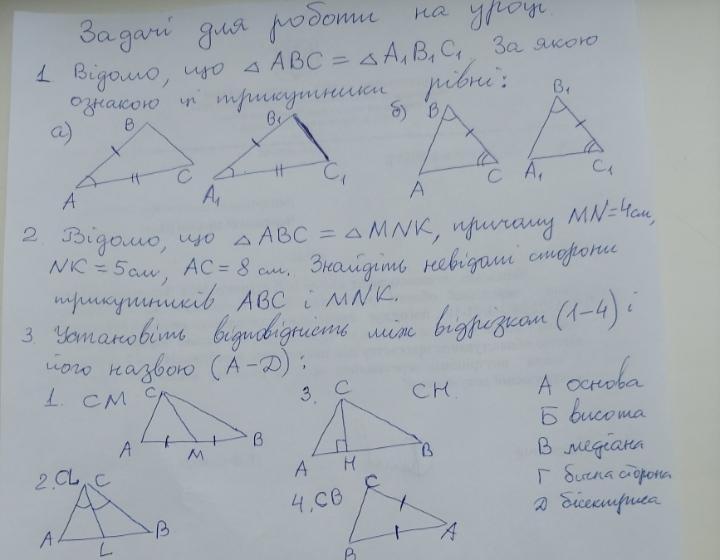 Задачі для роботи на уроці
1 Відомо, що △ABC = △A₁B₁C₁. За якою
ознакою ці трикутники рівні:
а) B B₁ б) B B₁
A C A₁ C₁ A C A₁ C₁
2. Відомо, що △ABC = △MNK, причому MN=4см,
NK=5см, AC=8см. Знайдіть невідомі сторони
трикутників ABC і MNK.
3. Установіть відповідність між відрізком (1-4) і
його назвою (А-Д):
1. CM C
A M B
3. C CH
A H B
А основа
Б висота
В медіана
Г бічна сторона
Д бісектриса
2. CL C
A L B
4. CB C
B A